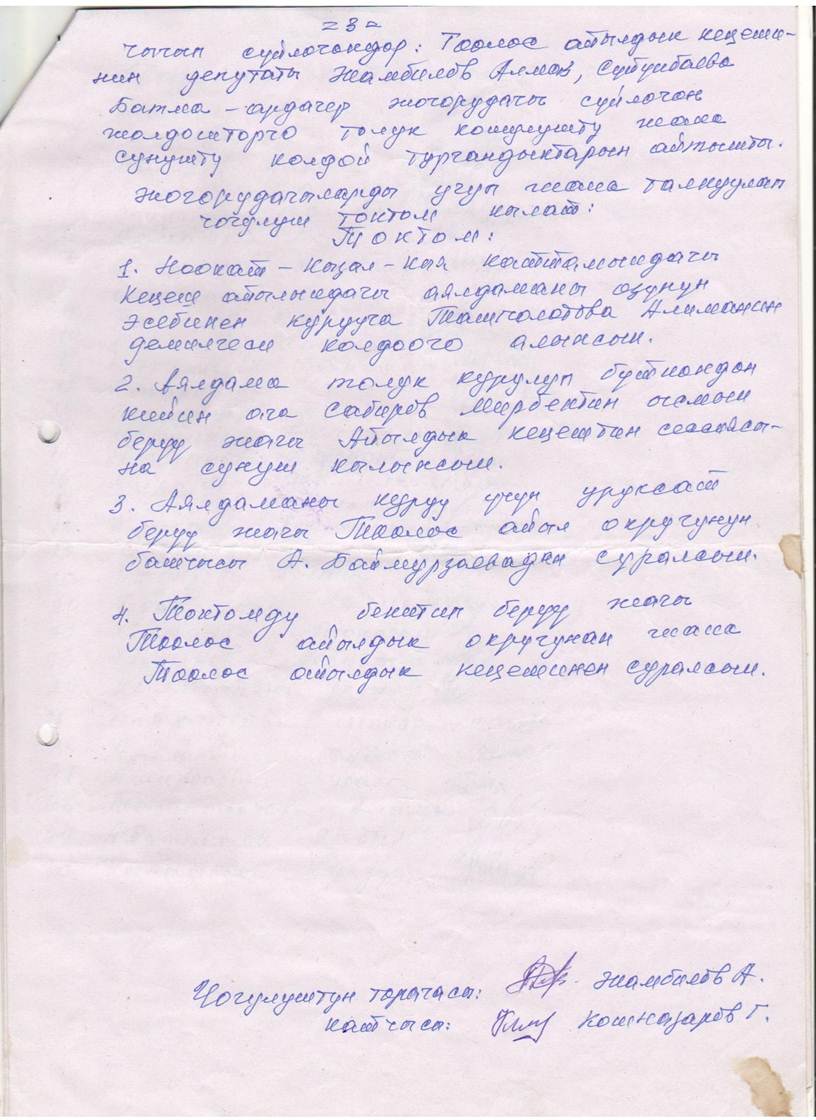 = 3 =
чыгып сүйлөчөндөр: Төөлөс айылдык кеңеши-
нин депутаты Жамбилов Алмаз,
Батма - ардагер жогорудагы сүйлөгөн
жолдошторго толук кошулушту жана
сунушту колдой тургандыктарын айтышты.
Жогорудагыларды угуп жана талкуулап
чогулуш токтом кылат:
Токтом:
1. Ноокат - Кызыл-Кия каттамындагы
Кеңеш айылындагы аялдаманы өзүнүн
эсебинен курууга Ташполотова Алиманын
демилгеси колдоого алынсын.
2. Аялдама толук курулуп бүткөндөн
кийин ага Сабиров Мирбектин ысмын
берүү жагы Айылдык кеңештин сессиясы-
на сунуш кылынсын.
3. Аялдаманы куруу үчүн уруксат
берүү жагы Төөлөс айыл округунун
башчысы А. Баймурзаевадан суралсын.
4. Токтомду бекитип берүү жагы
Төөлөс айылдык округунан жана
Төөлөс айылдык кеңешинен суралсын.
Чогулуштун төрагасы: Жамбилов А.
катчысы: Кошназаров Г.